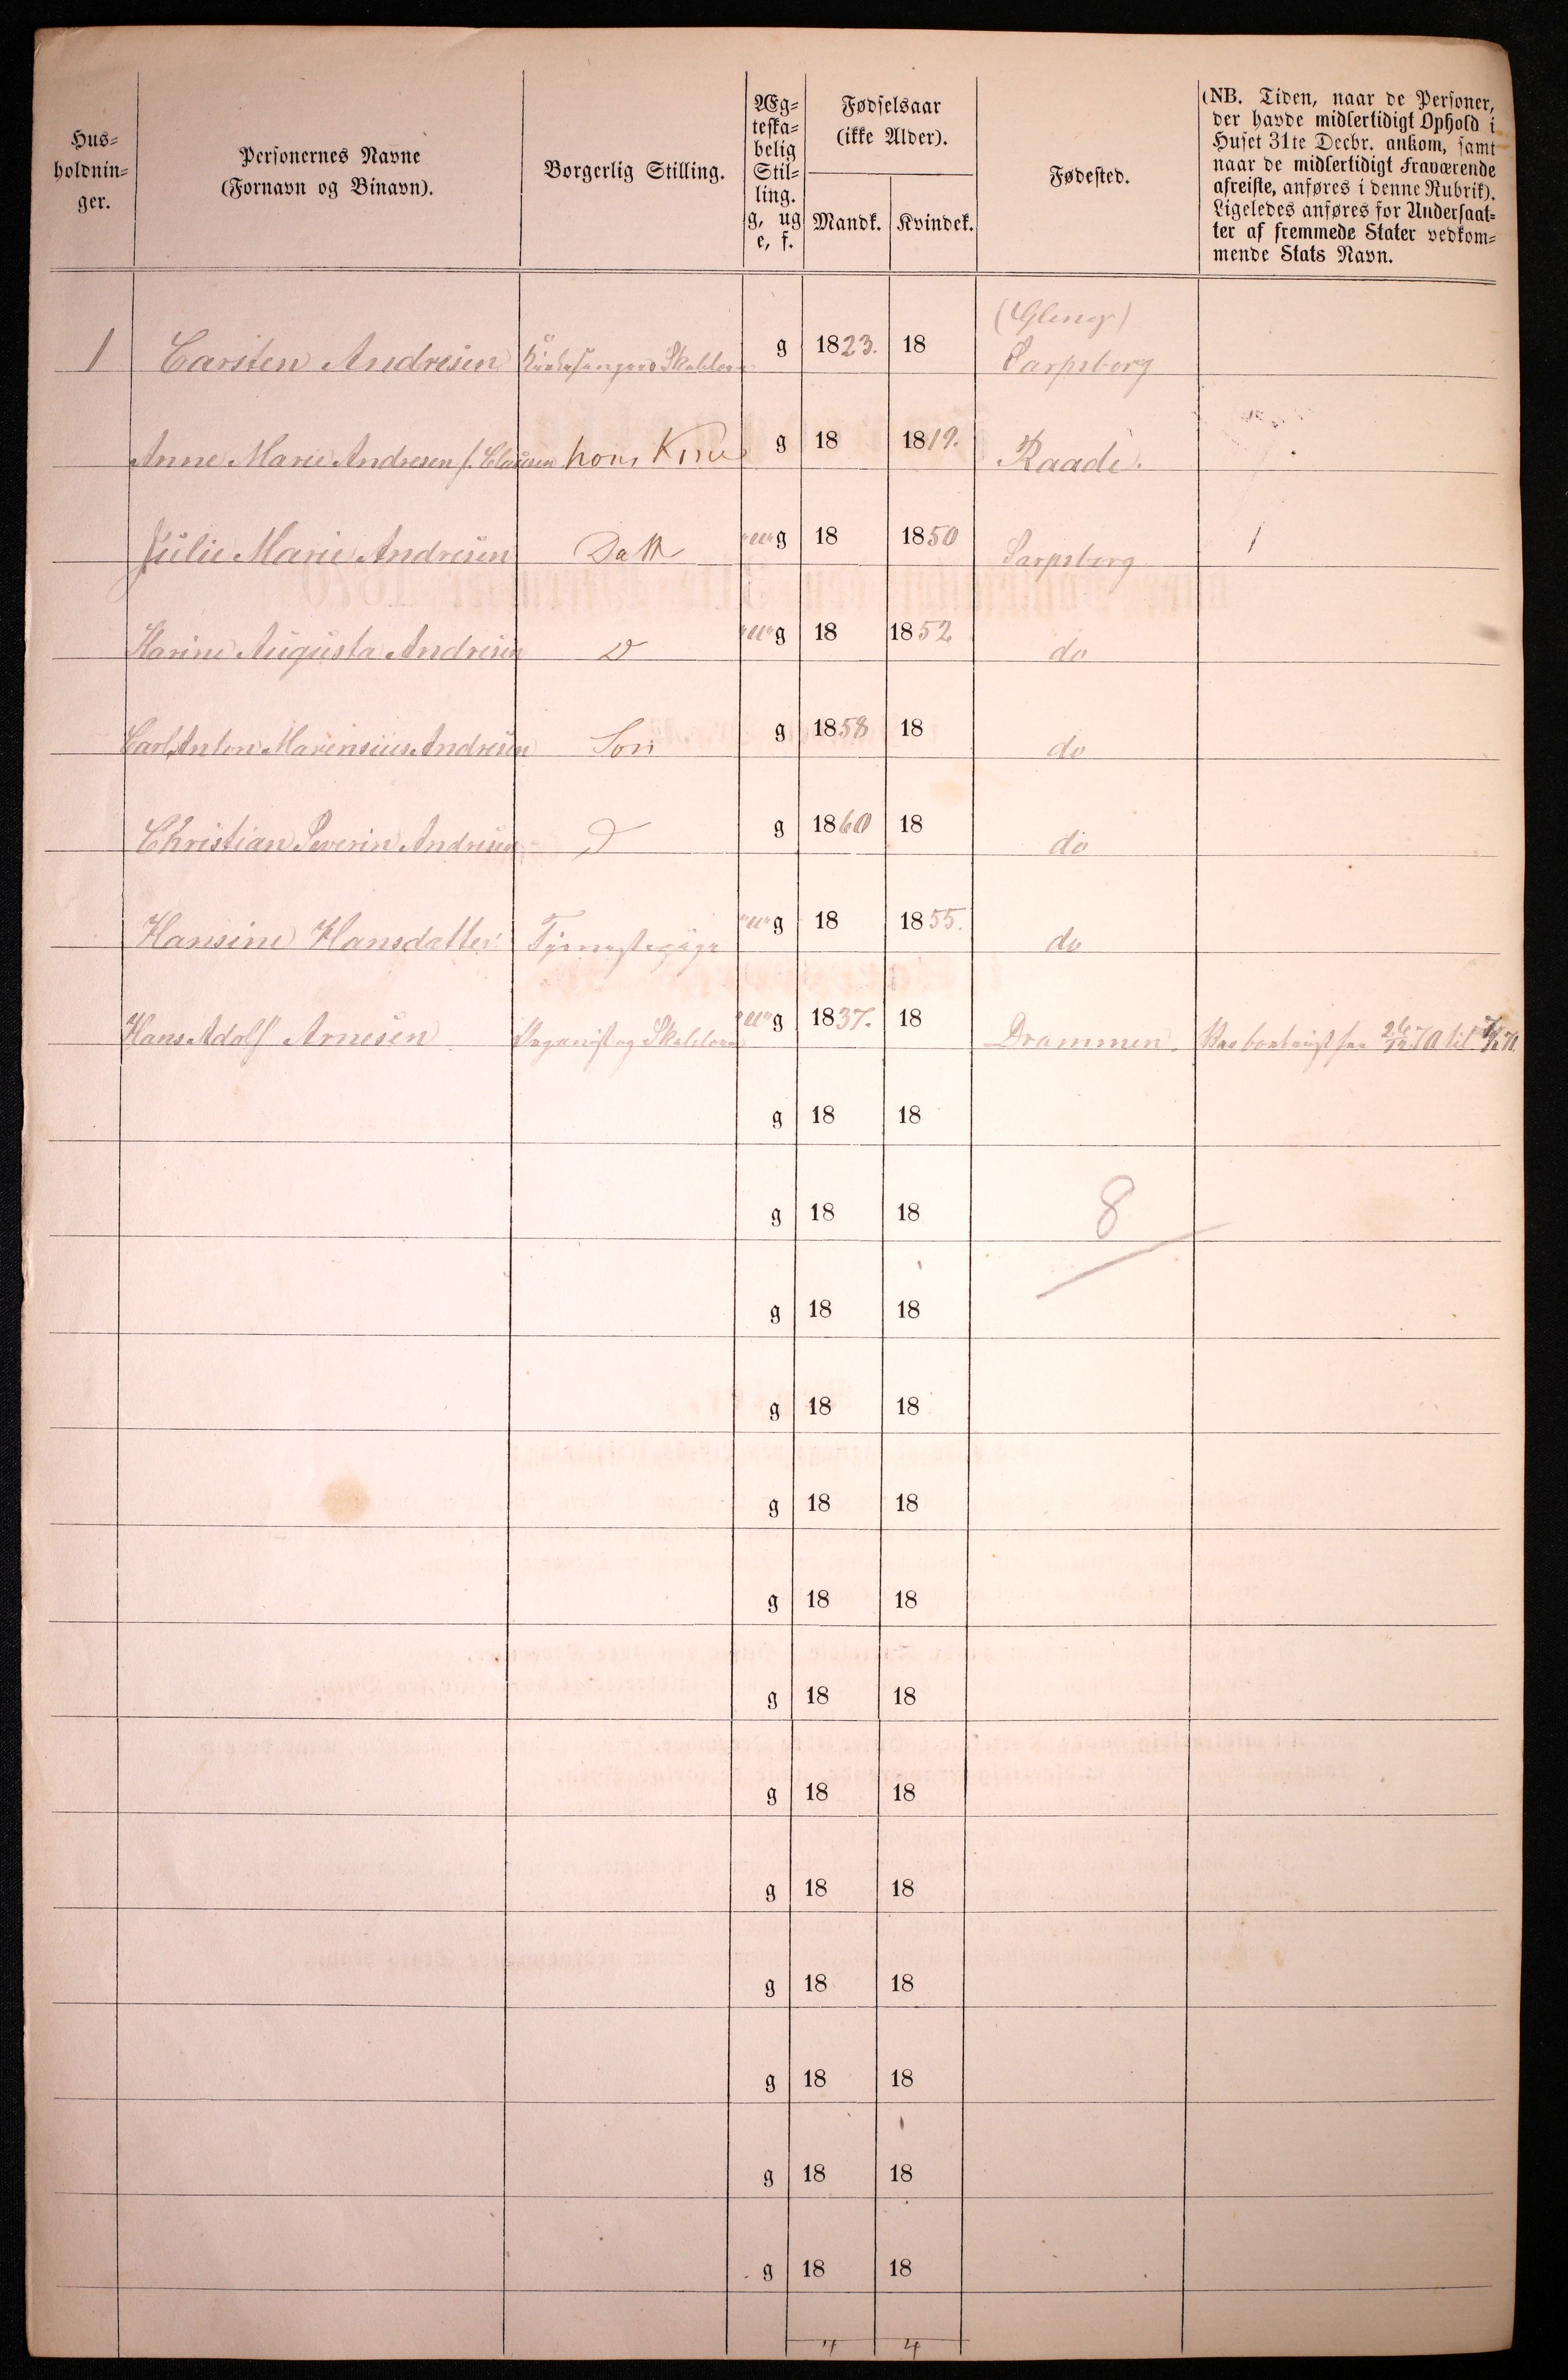 Hus=
holdnin=
ger.
Personernes Navne
(Fornavn og Binavn).
Borgerlig Stilling.
Æg=
teska=
belig
Stil=
ling.
g, ug
e, f.
Fødselsaar
(ikke Alder).
Mandk. Kvindek.
Fødested.
(NB. Tiden, naar de Personer,
der havde midlertidigt Ophold i
Huset 31te Decbr. ankom, samt
naar de midlertidigt Fraværende
afreiste, anføres i denne Rubrik).
Ligeledes anføres for Undersaat=
ter af fremmede Stater vedkom=
mende Stats Navn.
(Gleng)
1 Carsten Andresen Kirkesanger g 1823. 18 Sarpsborg
Anne Marie Andresen f. Clausen hans Kone g 18 1819. Raade.
Julie Marie Andresen Datt "u"g 18 1850 Sarpsborg 1
Karine Augusta Andresen D "u"g 18 1852 do
Carl Anton Marensius Andresen Søn g 1858 18 do
Christian Severin Andresen D g 1860 18 do
Hansine Hansdatter Tjenestepige "u"g 18 1855. do
Hans Adolf Arnesen Organist og "u"g 1837. 18 Drammen.
g 18 18
g 18 18 8
g 18 18
g 18 18
g 18 18
g 18 18
g 18 18
g 18 18
g 18 18
g 18 18
g 18 18
g 18 18
g 18 18
4 4